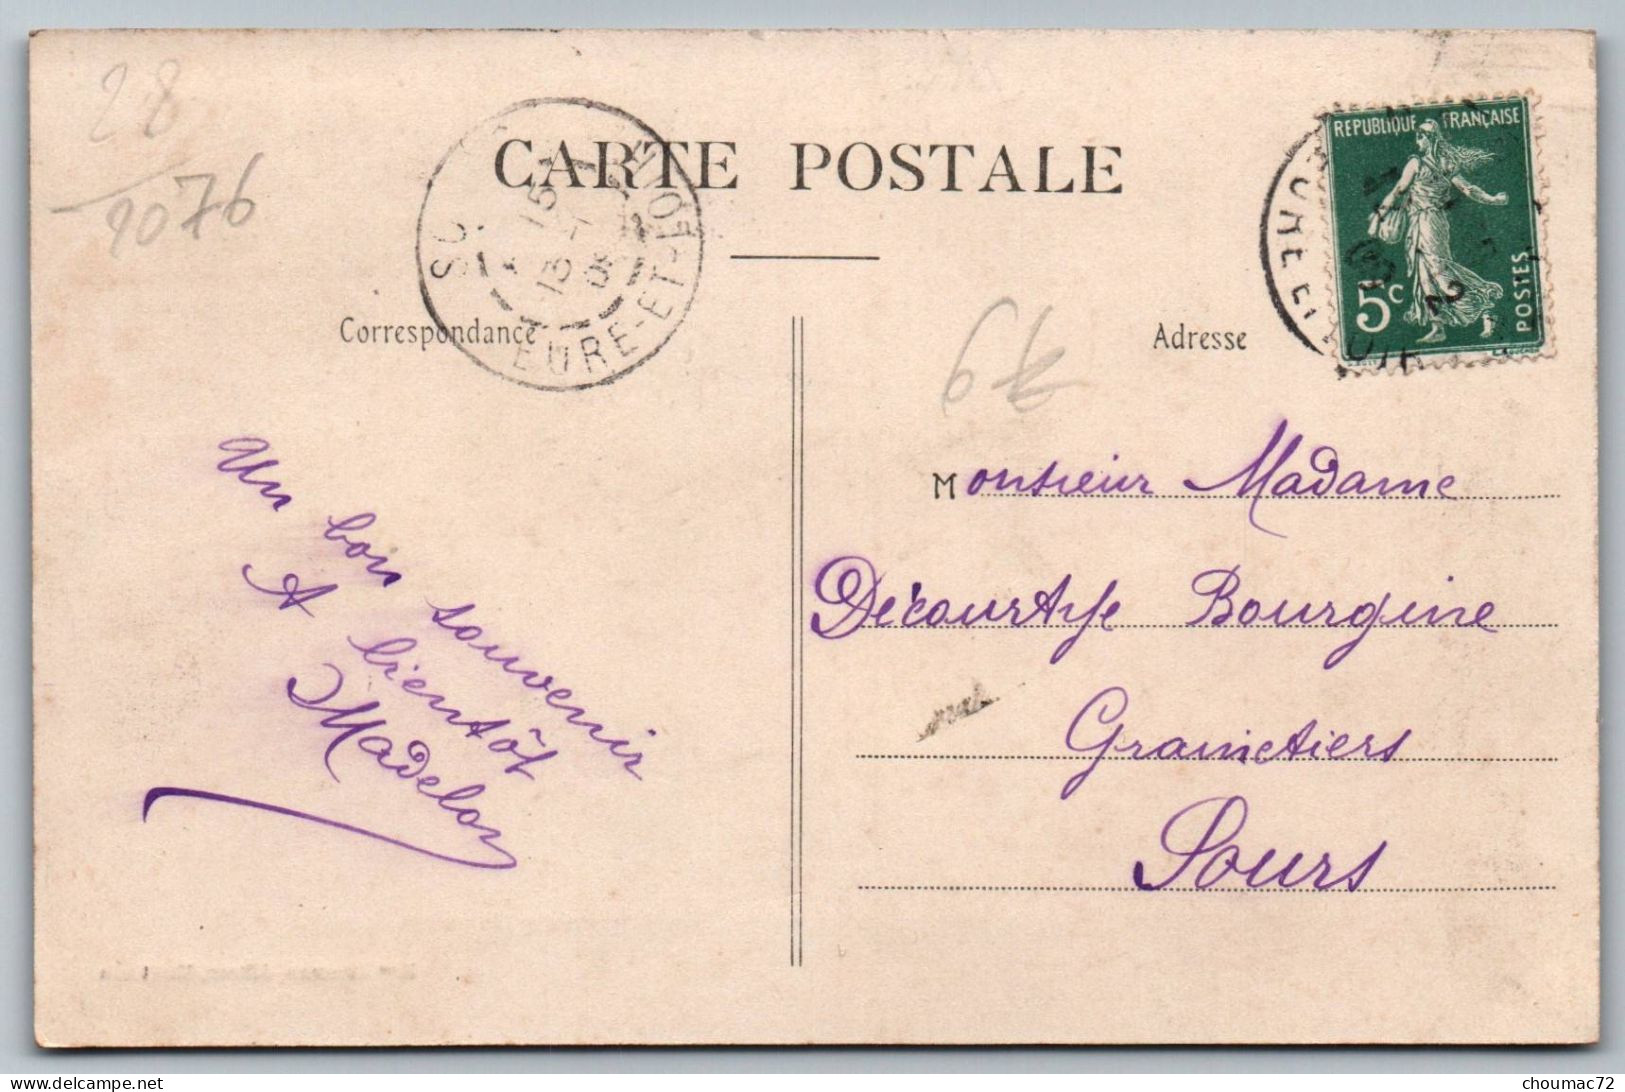 28
2076
CARTE POSTALE
EURE-ET-LOIR
15
13
08
REPUBLIQUE FRANÇAISE
5c
POSTES
Correspondance
Adresse
Un bon souvenir
A bientôt
Madelon
Monsieur Madame
Décourtye Bourgine
Grainetiers
Sours
choumac72